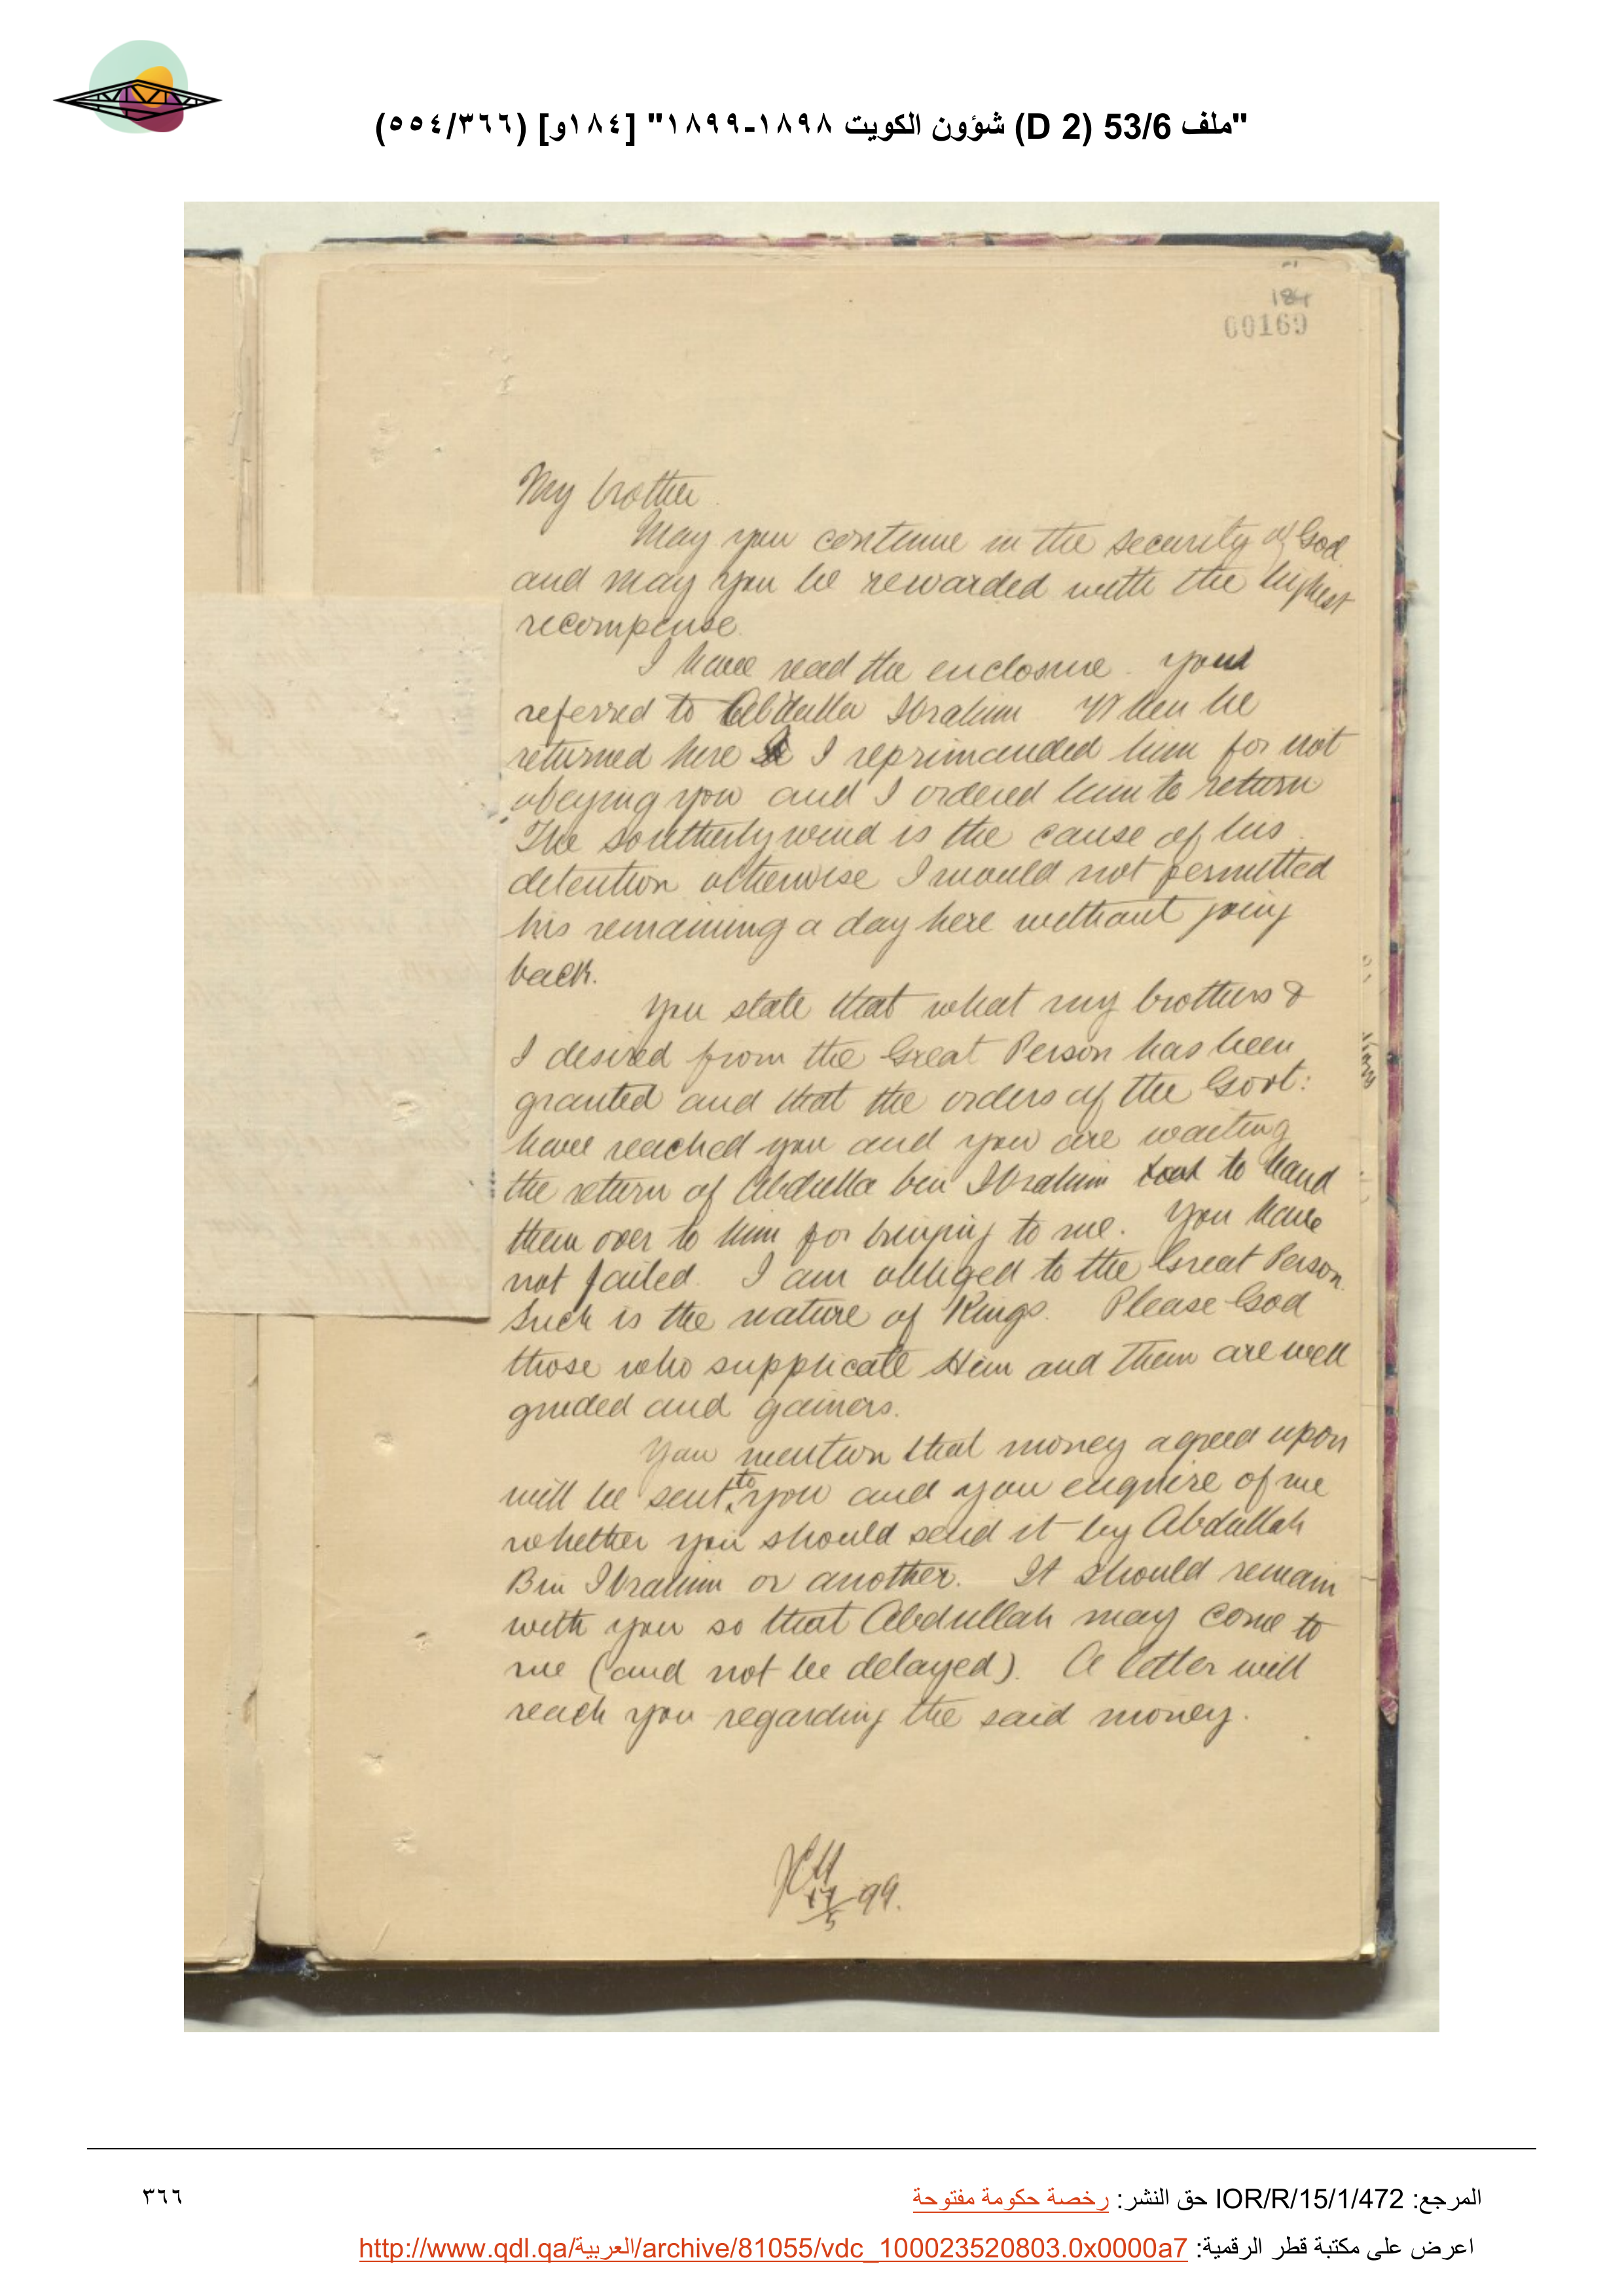 "ملف 53/6 (D 2) شؤون الكويت ١٨٩٨-١٨٩٩" [١٨٤و] (٥٥٤/٣٦٦)
184
00169
My brother
May you continue in the security of God
and may you be rewarded with the highest
recompense.
I have read the enclosure. You
referred to Abdulla Ibrahim When he
returned here I reprimanded him for not
obeying you and I ordered him to return
The southerly wind is the cause of his
detention otherwise I would not permitted
his remaining a day here without going
back.
You state that what my brothers &
I desired from the Great Person has been
granted and that the orders of the Govt:
have reached you and you are waiting
the return of Abdulla bin Ibrahim to hand
them over to him for bringing to me. You have
not failed. I am obliged to the Great Person
Such is the nature of Kings. Please God
those who supplicate Him and them are well
guided and gainers.
You mention that money agreed upon
will be sent to you and you enquire of me
whether you should send it by Abdullah
Bin Ibrahim or another. It should remain
with you so that Abdullah may come to
me (and not be delayed). A letter will
reach you regarding the said money.
17/5 99.
المرجع: IOR/R/15/1/472 حق النشر: رخصة حكومة مفتوحة
٣٦٦
اعرض على مكتبة قطر الرقمية: http://www.qdl.qa/العربية/archive/81055/vdc_100023520803.0x0000a7